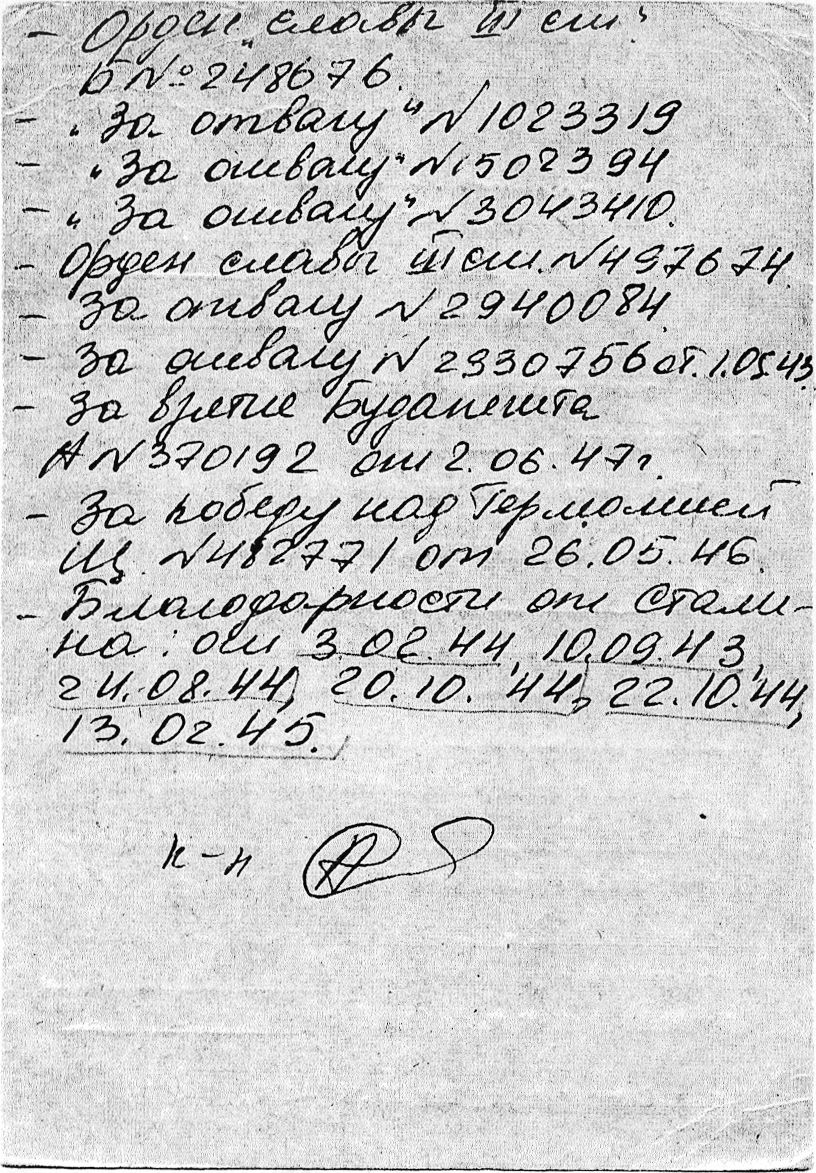 - Орден „славы III ст."
Б № 248676.
- „За отвагу" N 1023319
- „За отвагу" N 502394
- „За отвагу" N 3043410.
- Орден славы III ст. N 497674
- За отвагу N 2940084.
- За отвагу N 2330756 от. 1.05.43.
- За взятие Будапешта
А N 370192 от 2.06.47г.
- За победу над Германией
Щ N 482771 от 26.05.46.
- Благодарности от Стали-
на: от 3.02.44, 10.09.43,
24.08.44, 20.10.44, 22.10.44,
13.02.45.
к-н